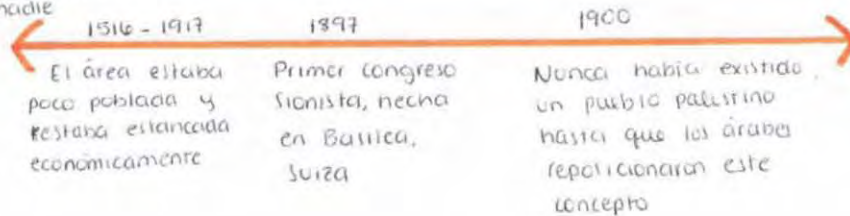 nadie
1516 - 1917
1897
1900
El área estaba
poco poblada y
estaba estancada
económicamente
Primer congreso
Sionista, hecha
en Basilea,
Suiza
Nunca había existido
un pueblo palestino
hasta que los árabes
reposicionaron este
concepto